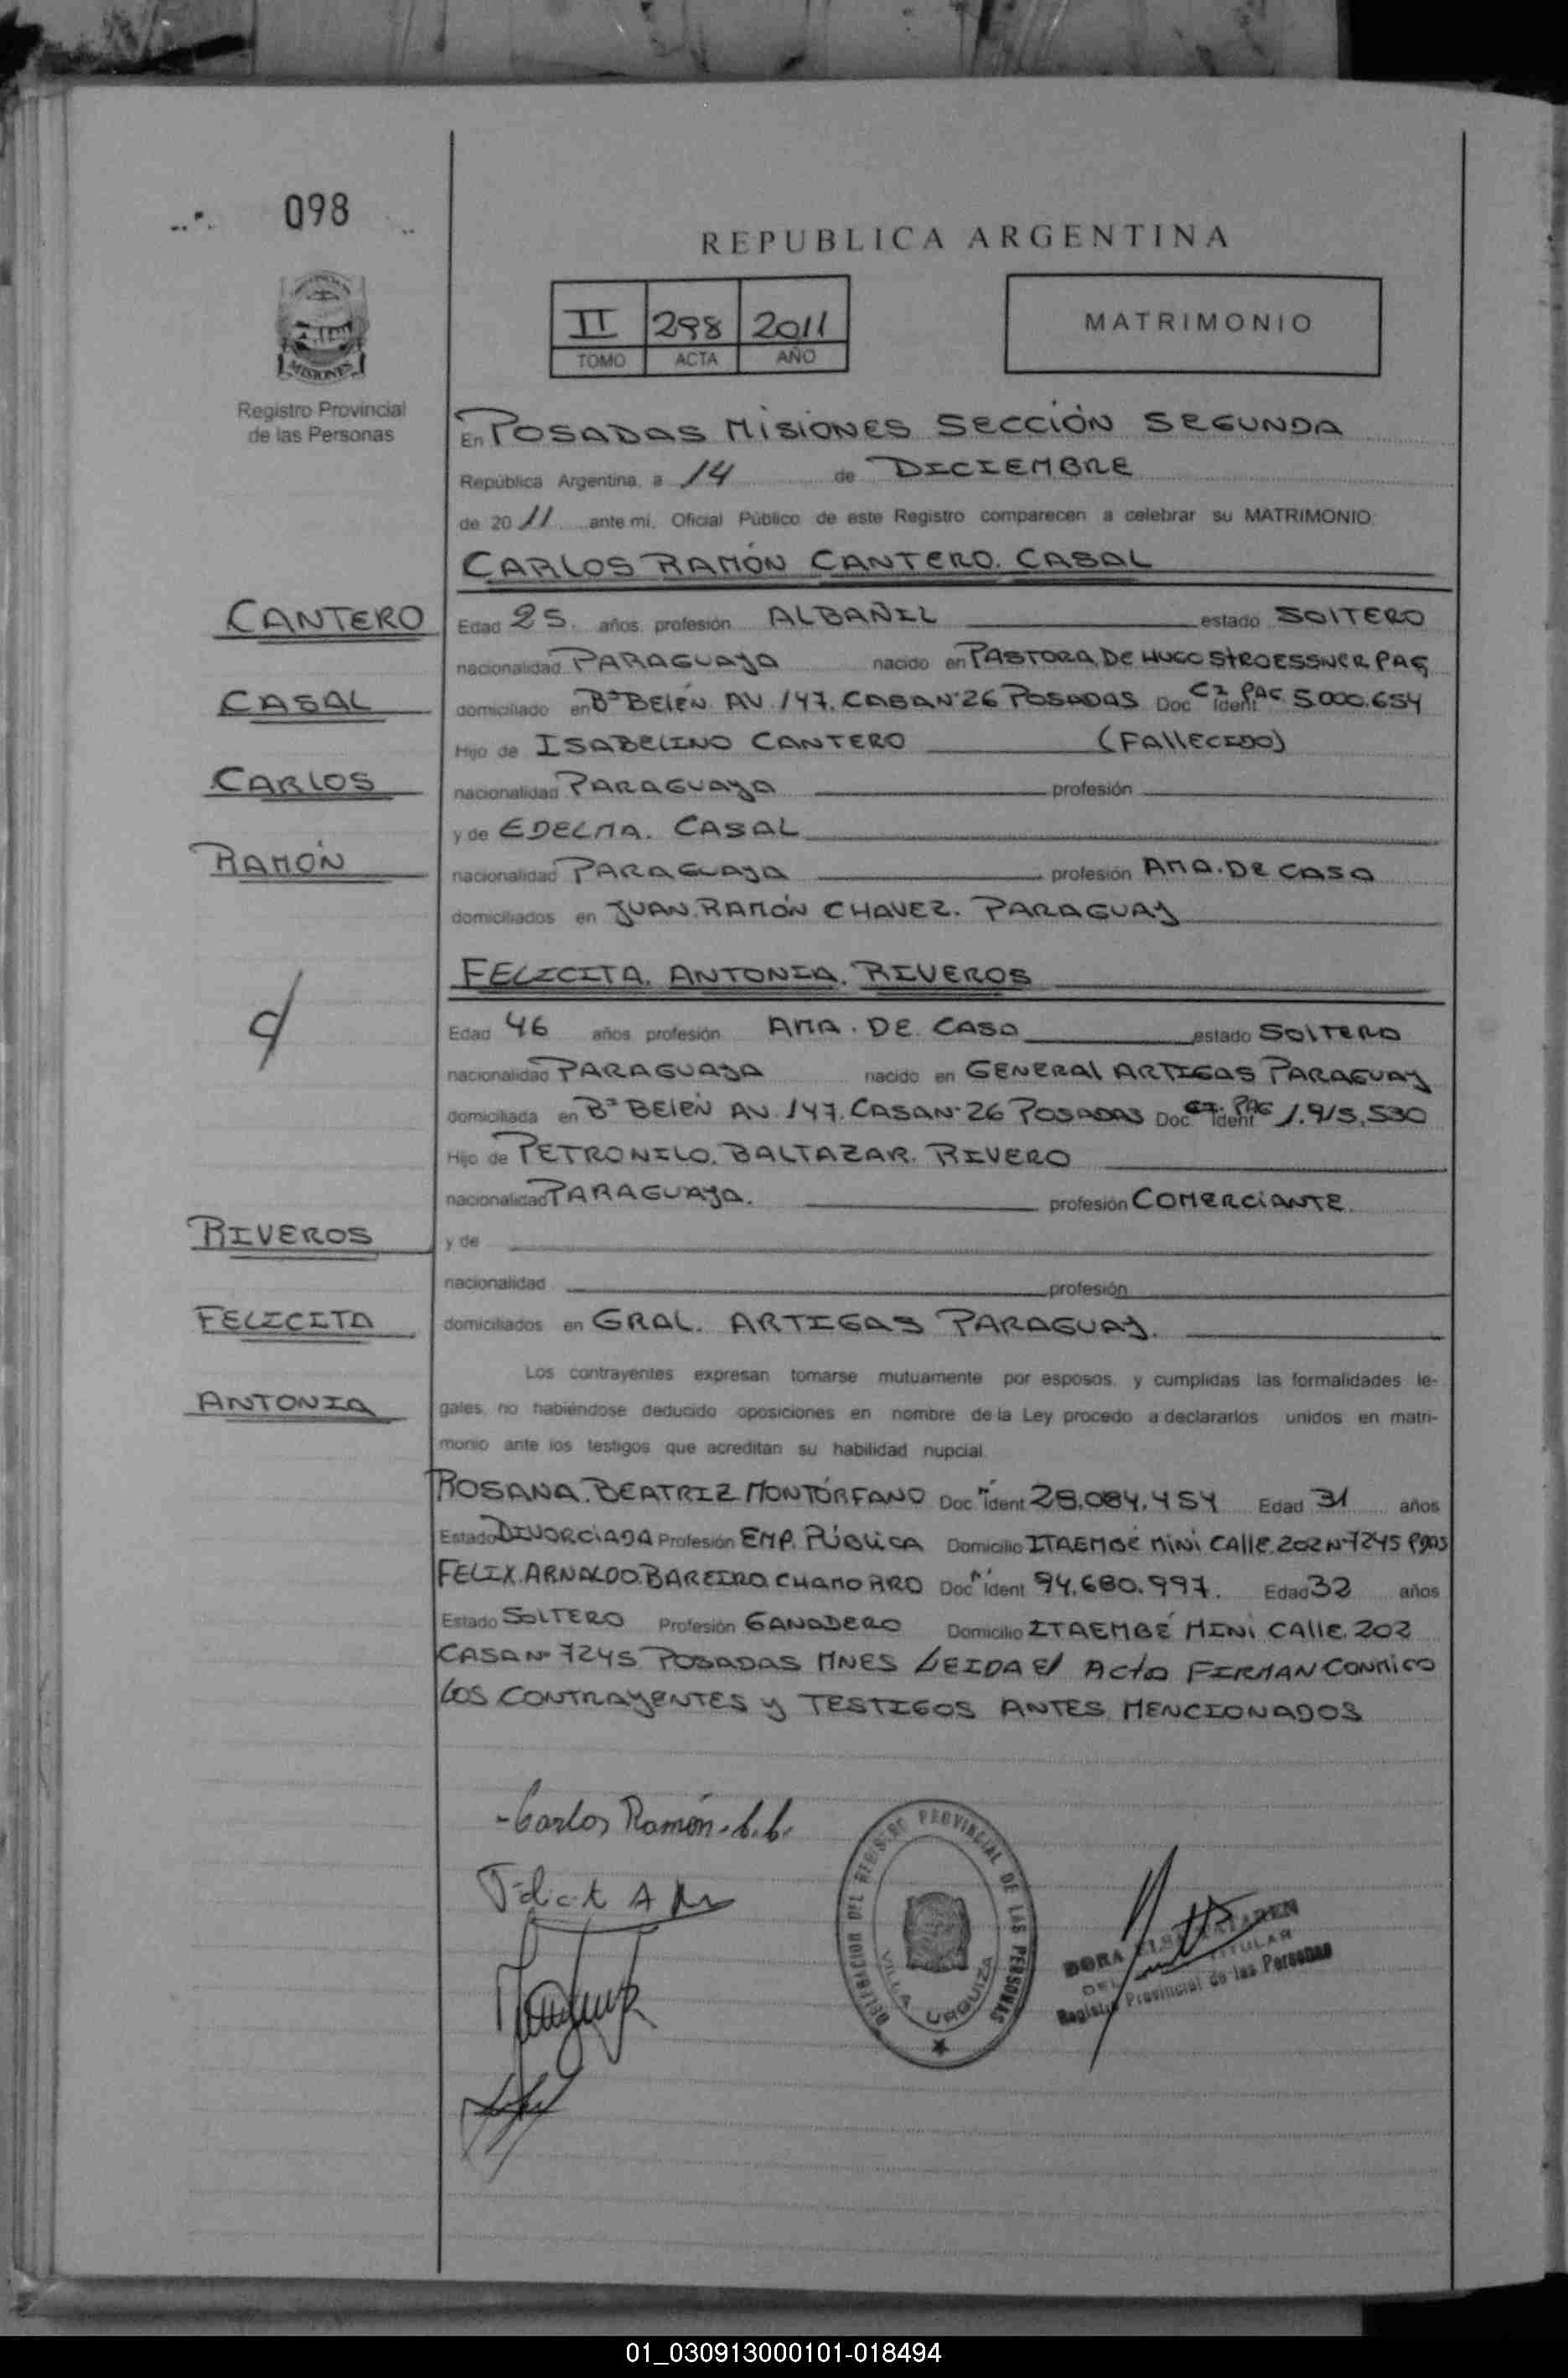 098
REPUBLICA ARGENTINA
II 298 2011
TOMO ACTA AÑO
MATRIMONIO
MISIONES
Registro Provincial
de las Personas
En POSADAS MISIONES SECCIÓN SEGUNDA
República Argentina, a 14 de DICIEMBRE
de 2011 ante mi, Oficial Público de este Registro comparecen a celebrar su MATRIMONIO:
CARLOS RAMÓN CANTERO. CASAL
CANTERO
Edad 25. años profesión ALBAÑIL estado SOLTERO
nacionalidad PARAGUAYA nacido en PASTORA DE HUGO STROESSNER PAG
CASAL
domiciliado en Bº BELÉN AV. 147. CASA Nº 26 POSADAS Doc. Ident CI PAG. 5.000.654
Hijo de ISABELINO CANTERO (FALLECIDO)
CARLOS
nacionalidad PARAGUAYA profesión
y de EDELMA. CASAL
RAMÓN
nacionalidad PARAGUAYA profesión AMA. DE CASA
domiciliados en JUAN. RAMÓN CHAVEZ. PARAGUAY
FELICITA. ANTONIA. RIVEROS
Edad 46 años profesión AMA. DE CASA estado SOLTERA
nacionalidad PARAGUAYA nacido en GENERAL ARTIGAS PARAGUAY
domiciliada en Bº BELÉN AV. 147. CASA Nº 26 POSADAS Doc. Ident CI. PAG 1.915.530
Hijo de PETRONILO. BALTAZAR. RIVERO
nacionalidad PARAGUAYA. profesión COMERCIANTE.
RIVEROS
y de
nacionalidad profesión
FELICITA
domiciliados en GRAL. ARTIGAS PARAGUAY.
Los contrayentes expresan tomarse mutuamente por esposos, y cumplidas las formalidades le-
ANTONIA
gales, no habiéndose deducido oposiciones en nombre de la Ley procedo a declararlos unidos en matri-
monio ante los testigos que acreditan su habilidad nupcial.
ROSANA. BEATRIZ MONTÓRFANO Doc. Ident 28.084.454 Edad 31 años
Estado DIVORCIADA Profesión EMP. PÚBLICA Domicilio ITAEMBÉ MINI CALLE 202 Nº 7245 PDAS
FELIX. ARNALDO. BAREIRO. CHAMORRO Doc. Ident 94.680.997. Edad 32 años
Estado SOLTERO Profesión GANADERO Domicilio ITAEMBÉ MINI CALLE. 202
CASA Nº 7245 POSADAS MNES LEIDA El Acta FIRMAN CONMIGO
LOS CONTRAYENTES y TESTIGOS ANTES MENCIONADOS
Carlos Ramón. C.C.
DELEGACION DEL REGISTRO PROVINCIAL DE LAS PERSONAS
VILLA URQUIZA
DORA
TITULAR
Registro Provincial de las Personas
01_030913000101-018494